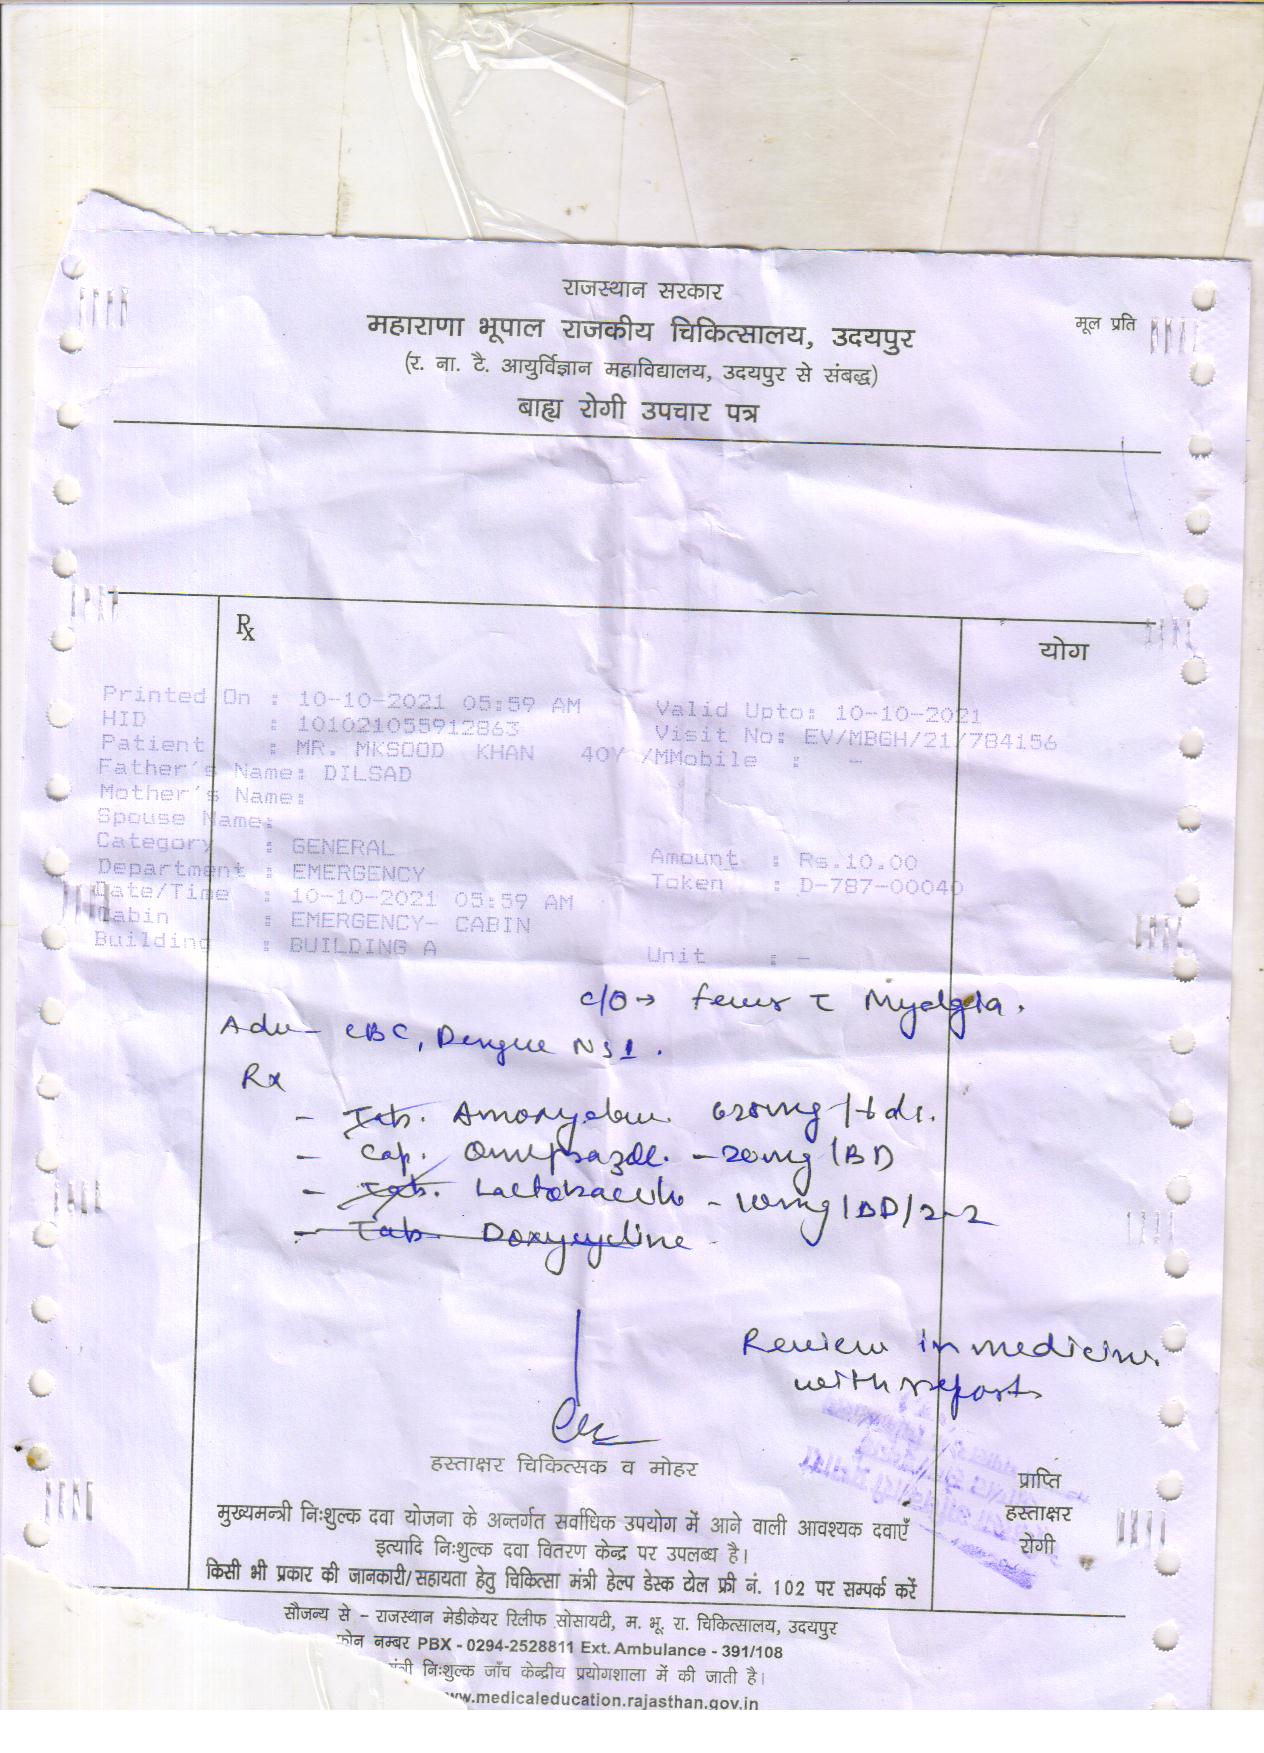 राजस्थान सरकार
महाराणा भूपाल राजकीय चिकित्सालय, उदयपुर
मूल प्रति
(र. ना. टै. आयुर्विज्ञान महाविद्यालय, उदयपुर से संबद्ध)
बाह्य रोगी उपचार पत्र
Rx
योग
Printed On : 10-10-2021 05:59 AM Valid Upto: 10-10-2021
HID : 101021055912863 Visit No: EV/MBGH/21/784156
Patient : MR. MKSOOD KHAN 40Y /MMobile : -
Father's Name: DILSAD
Mother's Name:
Spouse Name:
Category : GENERAL Amount : Rs.10.00
Department : EMERGENCY Token : D-787-00040
Date/Time : 10-10-2021 05:59 AM
Cabin : EMERGENCY- CABIN
Building : BUILDING A Unit : -
c/o → fever c Myalgia.
Adv - CBC, Dengue NS1.
Rx
- Tab. 625mg/tds.
- Cap. Omeprazole. - 20mg/BD
- Tab. - 10mg/BD/2-2
- Tab. Doxycycline
Review in medicine
with reports
हस्ताक्षर चिकित्सक व मोहर
प्राप्ति
हस्ताक्षर
रोगी
मुख्यमन्त्री निःशुल्क दवा योजना के अन्तर्गत सर्वाधिक उपयोग में आने वाली आवश्यक दवाएँ
इत्यादि निःशुल्क दवा वितरण केन्द्र पर उपलब्ध है।
किसी भी प्रकार की जानकारी/सहायता हेतु चिकित्सा मंत्री हेल्प डेस्क टोल फ्री नं. 102 पर सम्पर्क करें
सौजन्य से - राजस्थान मेडीकेयर रिलीफ सोसायटी, म. भू. रा. चिकित्सालय, उदयपुर
फोन नम्बर PBX - 0294-2528811 Ext. Ambulance - 391/108
निःशुल्क जाँच केन्द्रीय प्रयोगशाला में की जाती है।
www.medicaleducation.rajasthan.gov.in